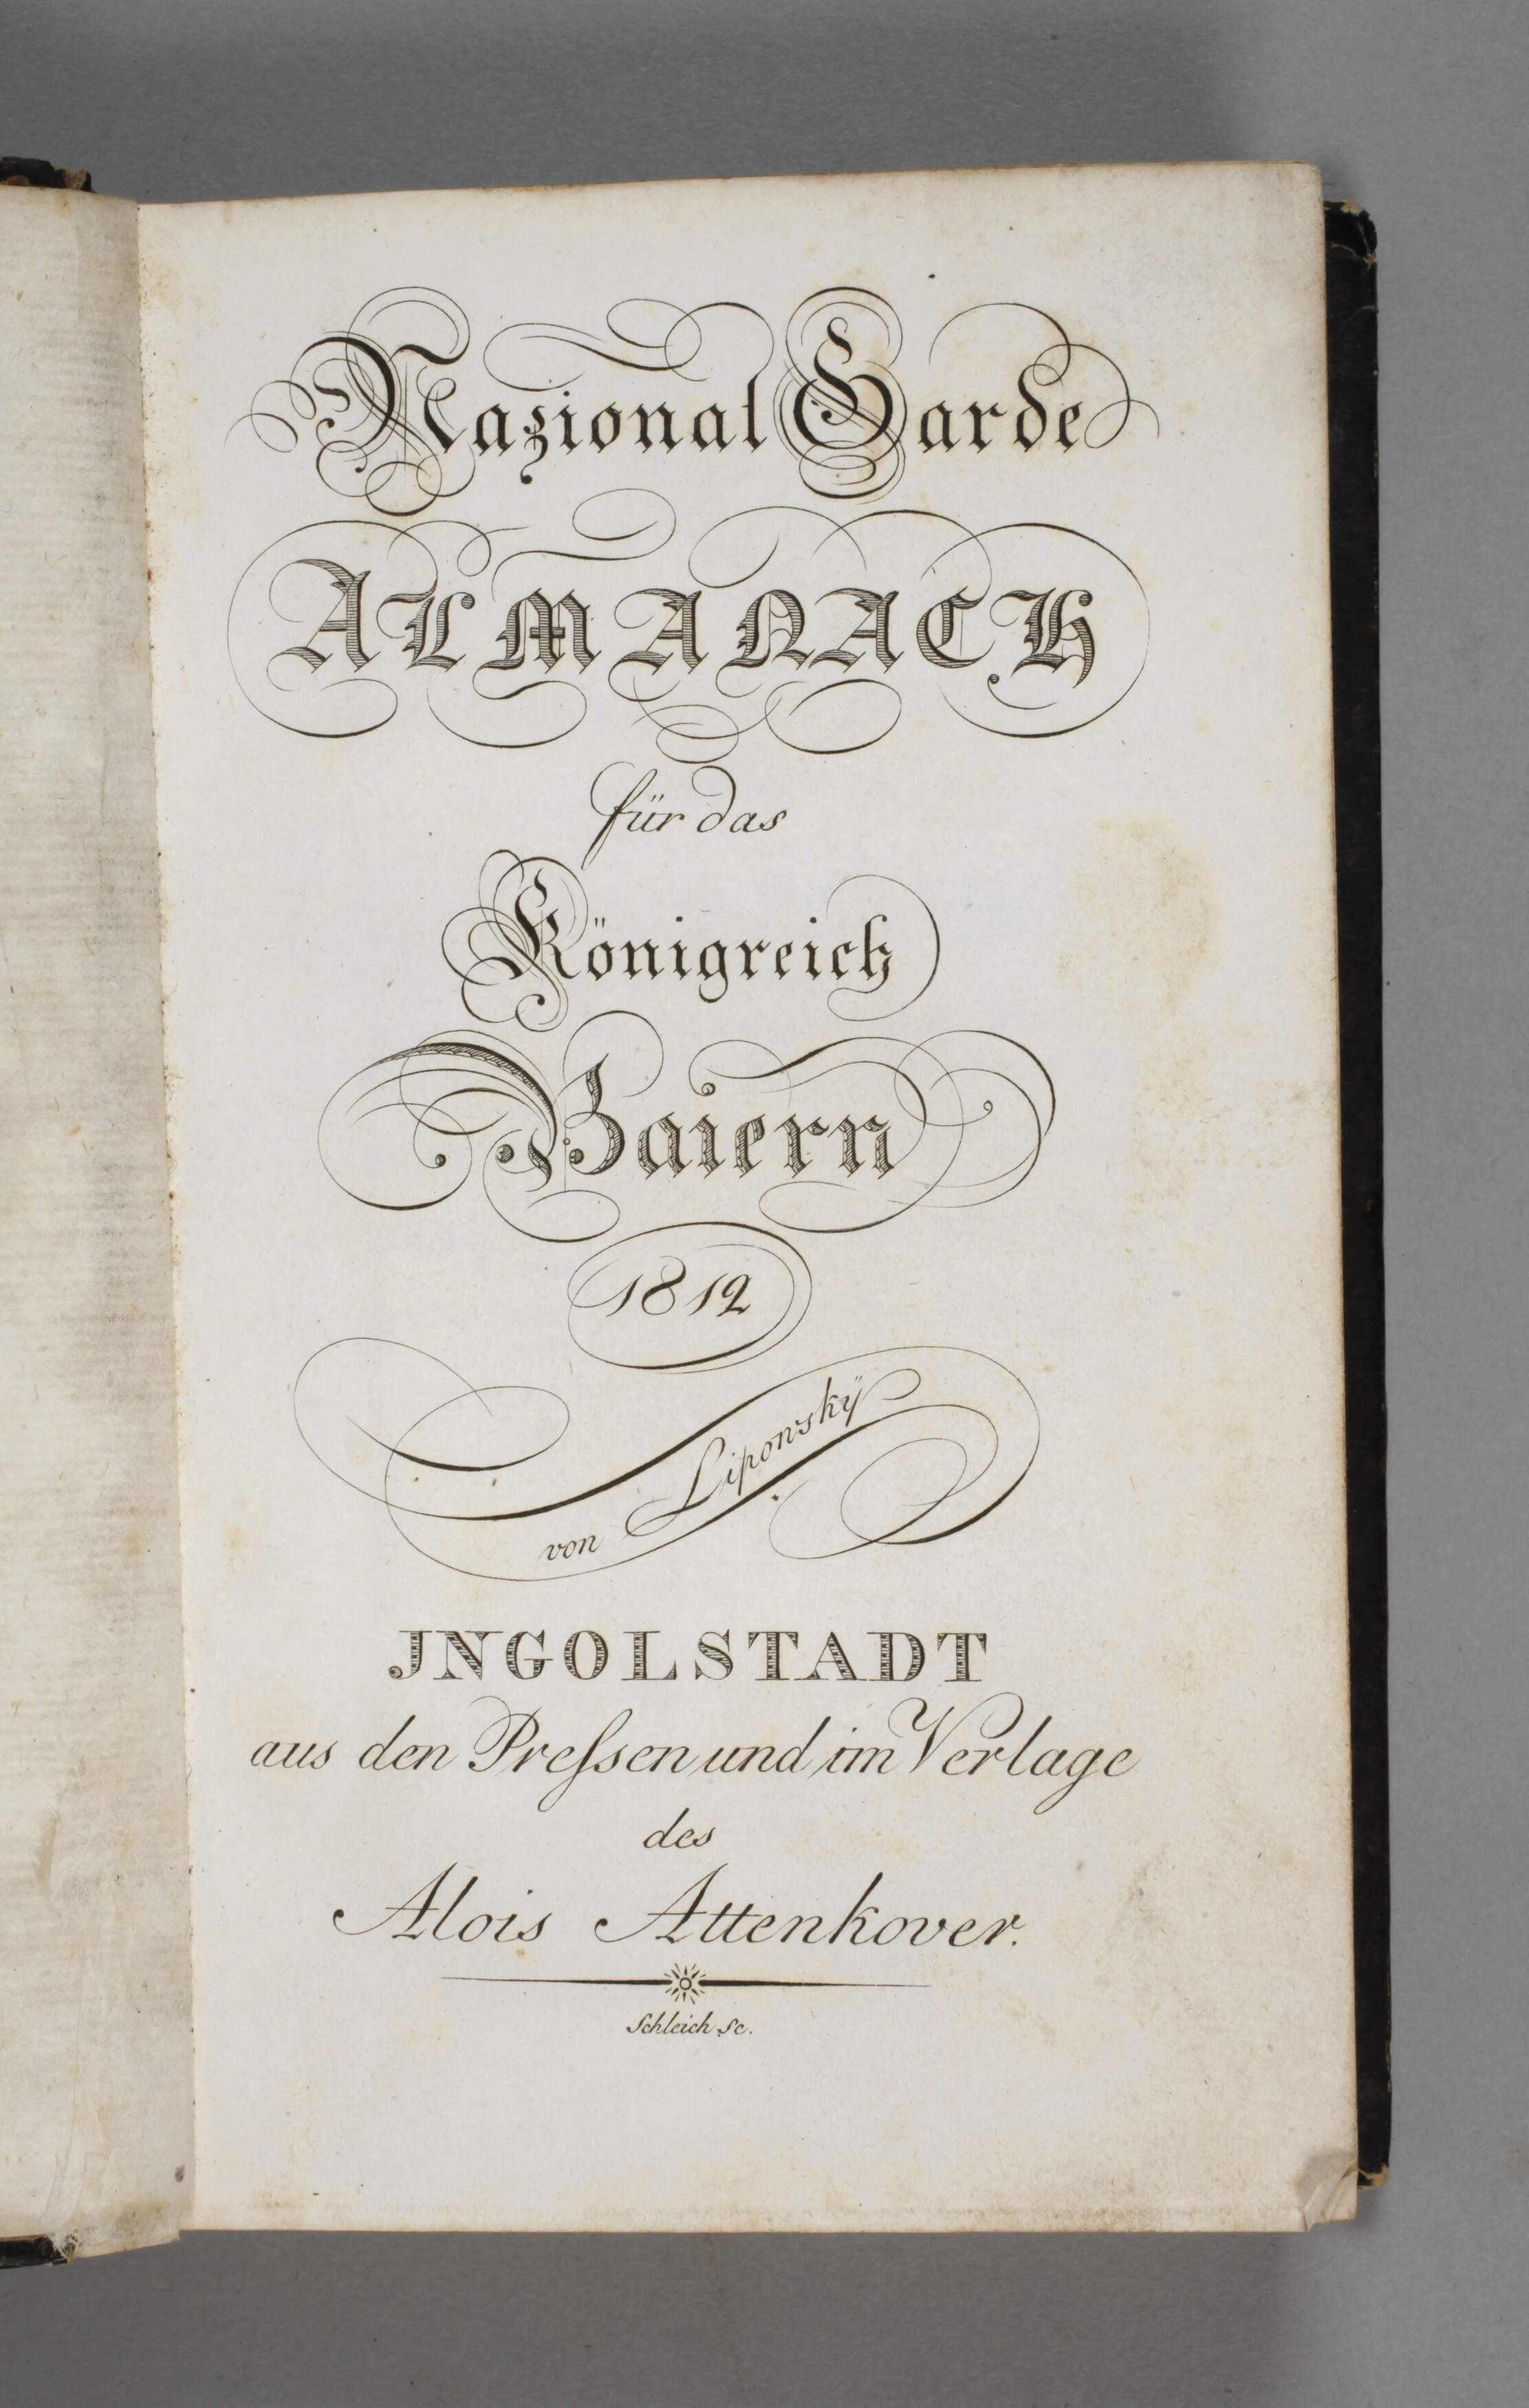 Nazional Garde
ALMANACH
für das
Königreich
Baiern
1812
von Liponskÿ
JNGOLSTADT
aus den Preſsen und im Verlage
des
Alois Attenkover.
Schleich sc.